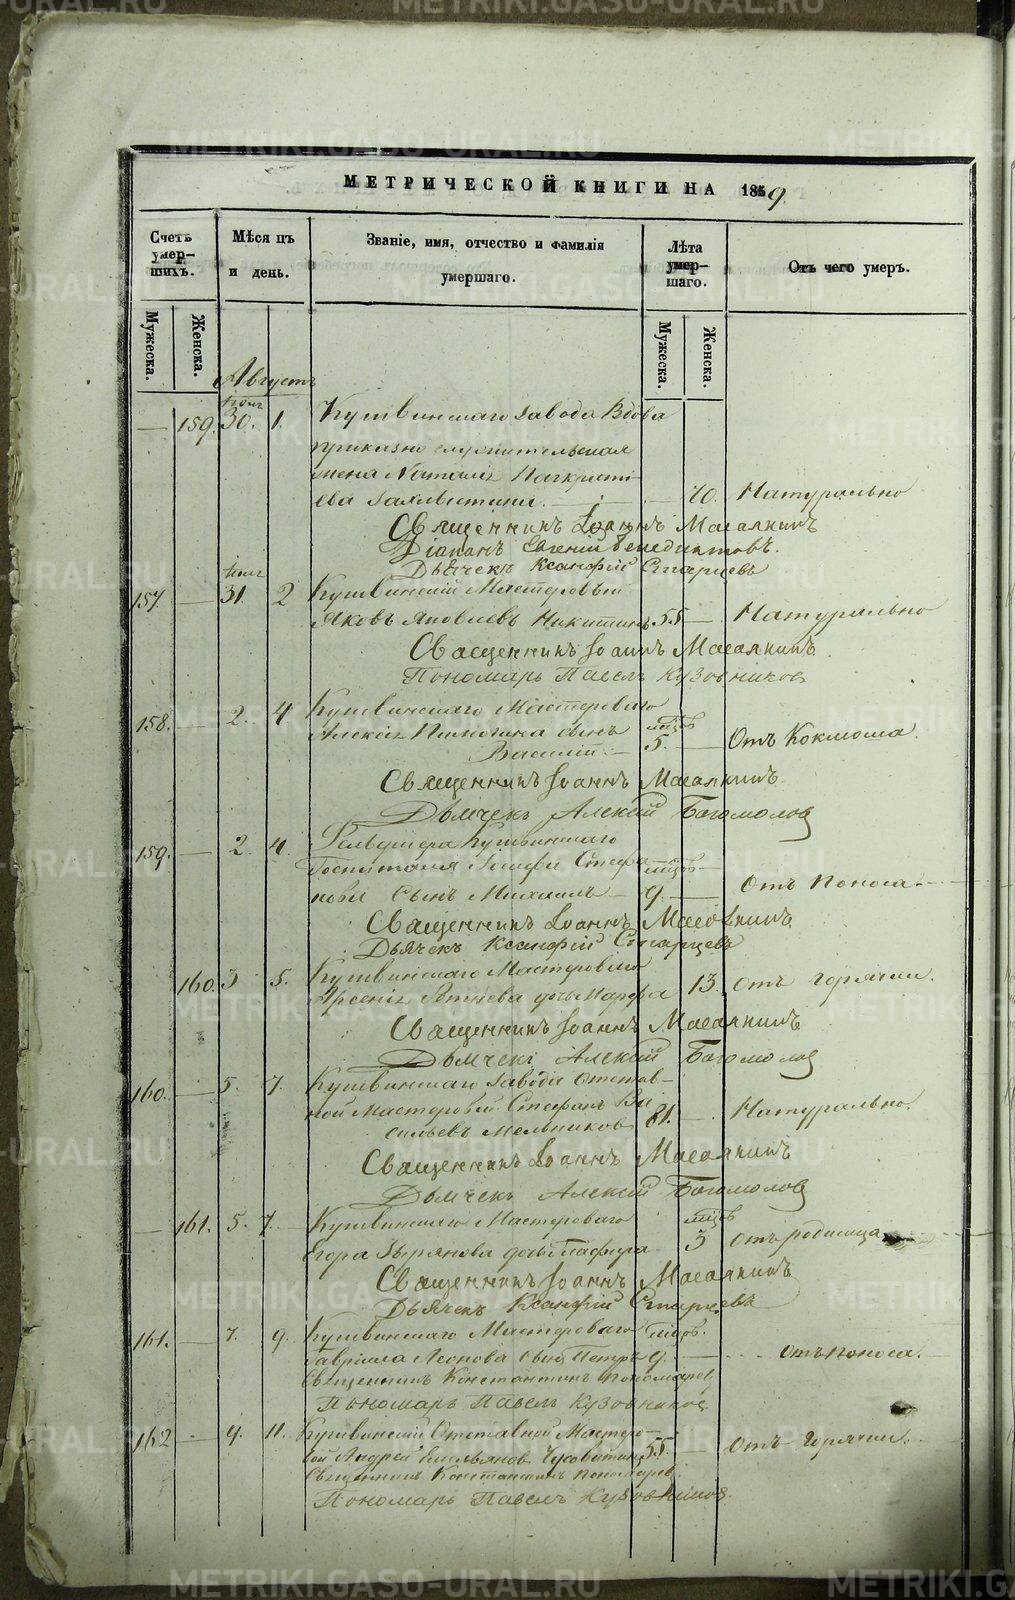 METRIKI.GASO-URAL.RU
МЕТРИЧЕСКОЙ КНИГИ НА 1859
Счетъ умер-шихъ.
Мѣсяцъ и день.
Званіе, имя, отчество и фамилія умершаго.
Лѣта умер-шаго.
Отъ чего умеръ.
Мужеска.
Женска.
Мужеска.
Женска.
Августъ
— 159. 30. 1. Кушвинскаго завода Вдова
приказно служительская
жена Наталія Панкрати-
ева — 70. Натурально
Священникъ Іоаннъ Масалкинъ
Діаконъ Евгеній Бенедиктовъ.
Дьячекъ Ксанфій Старцевъ
157. — 31. 2 Кушвинскій Мастеровый
Яковъ Яковлевъ Никитинъ 55 — Натурально
Священникъ Іоаннъ Масалкинъ.
Пономарь Павелъ Кузовниковъ
158. — 2. 4 Кушвинскаго Мастероваго
Алексія сынъ мѣцъ
Василій — 5. — Отъ Коклюша.
Священникъ Іоаннъ Масалкинъ.
Дьячекъ Алексій Богомоловъ
159. — 2. 4. Кушвинскаго
Госпиталя Стефа- мѣцъ
нова Сынъ Михаилъ — 9. — Отъ поноса.
Священникъ Іоаннъ Масалкинъ.
Дьячекъ Ксанфій Старцевъ
160. 3 5. Кушвинскаго Мастероваго
Арсенія дочь Марфа 13. отъ горячки.
Священникъ Іоаннъ Масалкинъ
Дьячекъ Алексій Богомоловъ
160. — 5. 7. Кушвинскаго завода Отстав-
ной Мастеровой Стефанъ Ва-
сильевъ Мельниковъ 81. — Натурально.
Священникъ Іоаннъ Масалкинъ
Дьячекъ Алексій Богомоловъ
— 161. 5. 7. Кушвинскаго Мастероваго мѣцъ
Егора Зырянова дочь 3 отъ родимца
Священникъ Іоаннъ Масалкинъ
Дьячекъ Ксанфій Старцевъ
161. — 7. 9. Кушвинскаго Мастероваго мѣцъ.
Гавріила Леонова сынъ Петръ 9. — отъ поноса.
Священникъ Константинъ Пономаревъ
Пономарь Павелъ Кузовниковъ
162 — 9. 11. Кушвинскій Отставной Мастеро-
вой Андрей Емельяновъ 55. Отъ горячки.
Священникъ Константинъ Пономаревъ
Пономарь Павелъ Кузовниковъ.